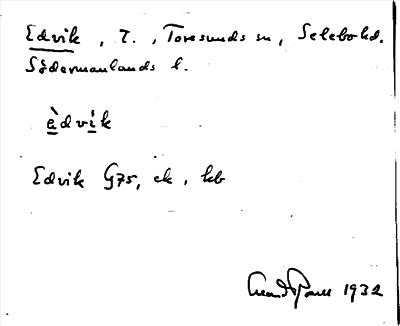 Edvik, T., Toresunds sn, Selebo hd.
Södermanlands l.
èdvik
Edvik G75, ek, kb
1932